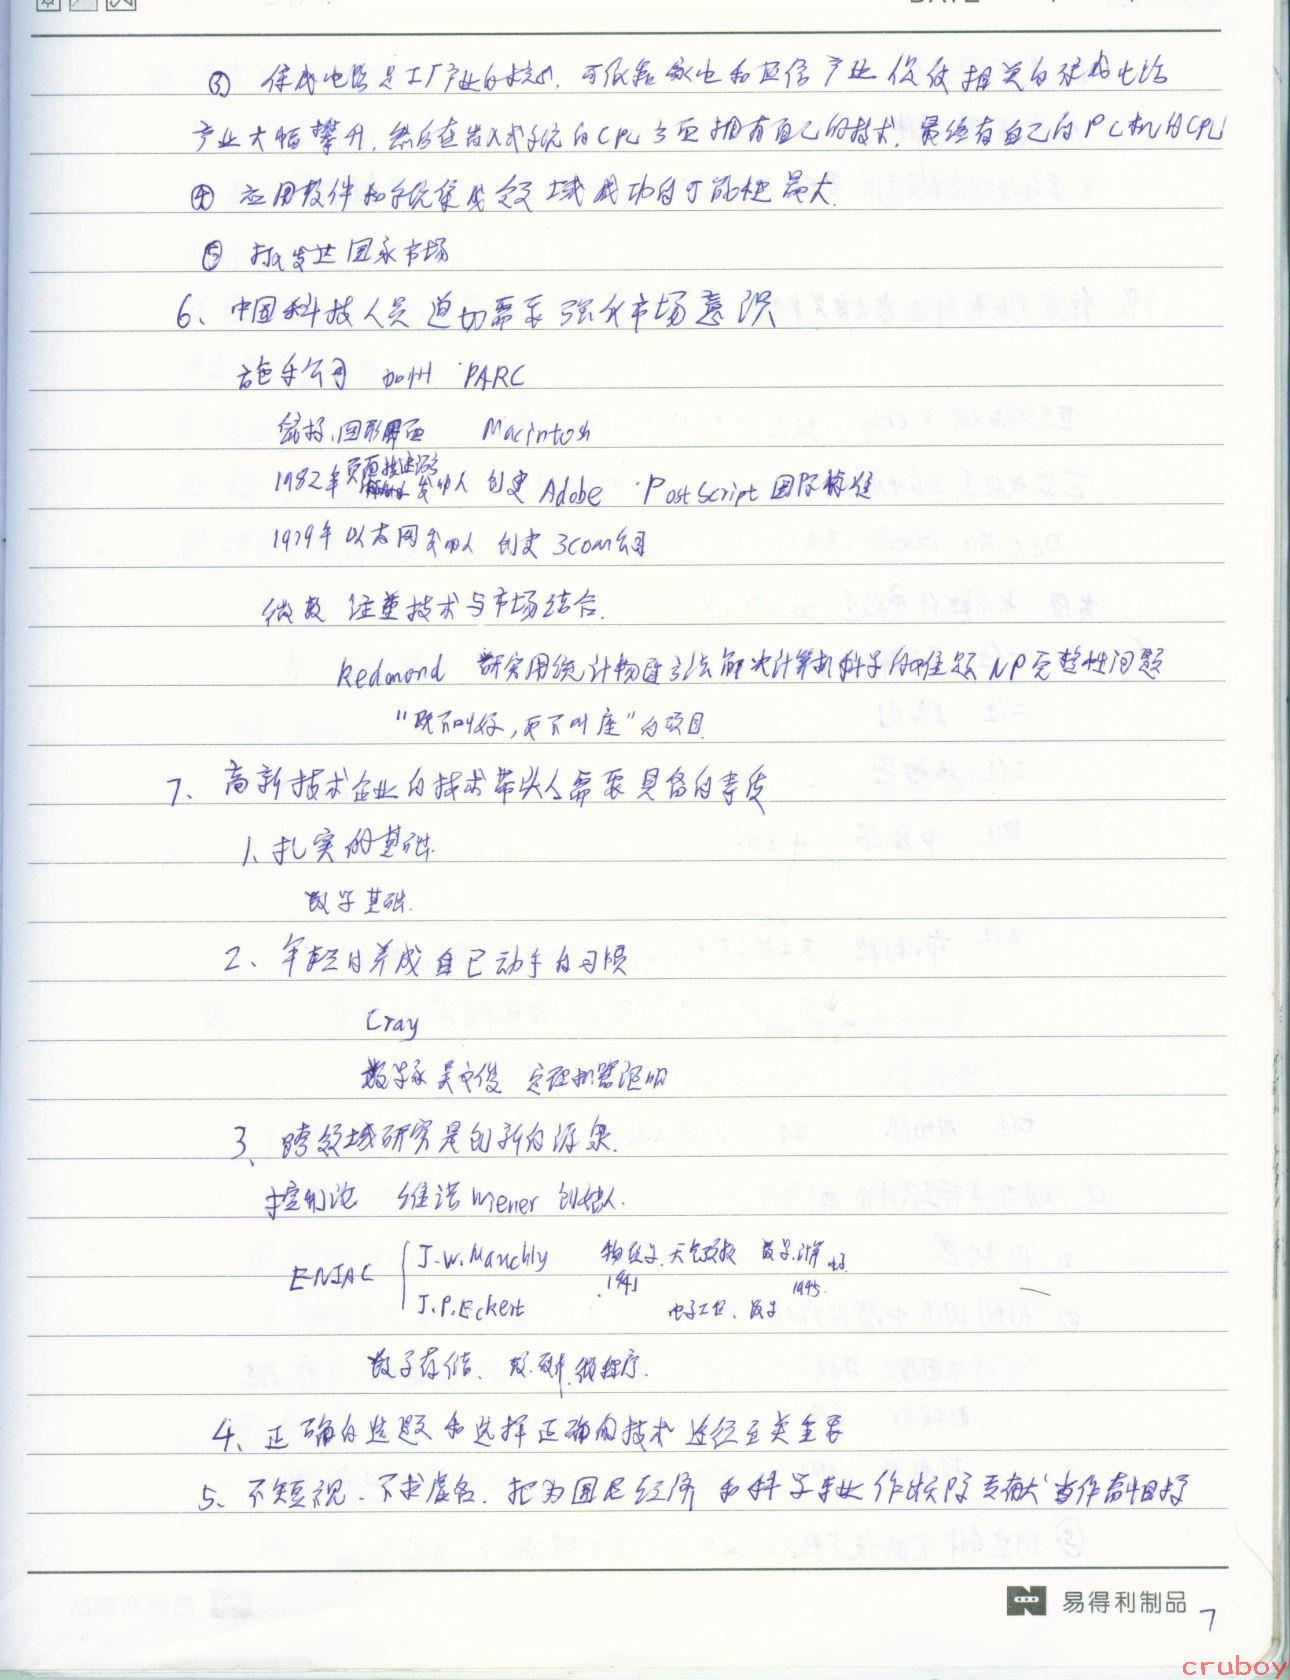 DATE
③ 集成电路是工厂产业的核心,可依靠家电和通信产业促使相关的集成电路
产业大幅攀升,然后在嵌入式系统的CPU方面拥有自己的技术,最终有自己的PC机的CPU
④ 应用软件和系统集成领域成功的可能性最大.
⑤ 打入发达国家市场
6、中国科技人员迫切需要强化市场意识
施乐公司 加州 PARC
鼠标,图形界面 Macintosh
1982年页面描述语言发明人 创建 Adobe · PostScript 国际标准
1979年 以太网发明人 创建 3com公司
微软 注重技术与市场结合.
Redmond 研究用统计物理方法解决计算机科学的难题 NP完整性问题
"既不叫好,更不叫座"的项目
7、高新技术企业的技术带头人需要具备的素质
1、扎实的基础.
数学基础.
2、年轻时养成自己动手的习惯
Cray
数学家 吴文俊 定理机器证明
3、跨领域研究是创新的源泉.
控制论 维诺 Wiener 创始人.
ENIAC J.W.Mauchly 物理学.天气预报 数学.计算 电子
1941 1945.
J.P.Eckert 电子工程、数学
数字存储、 微程序.
4、正确的选题和选择正确的技术途径至关重要
5、不短视、不求虚名,把为国民经济和科学事业作出实际贡献当作奋斗目标
易得利制品 7
cruboy